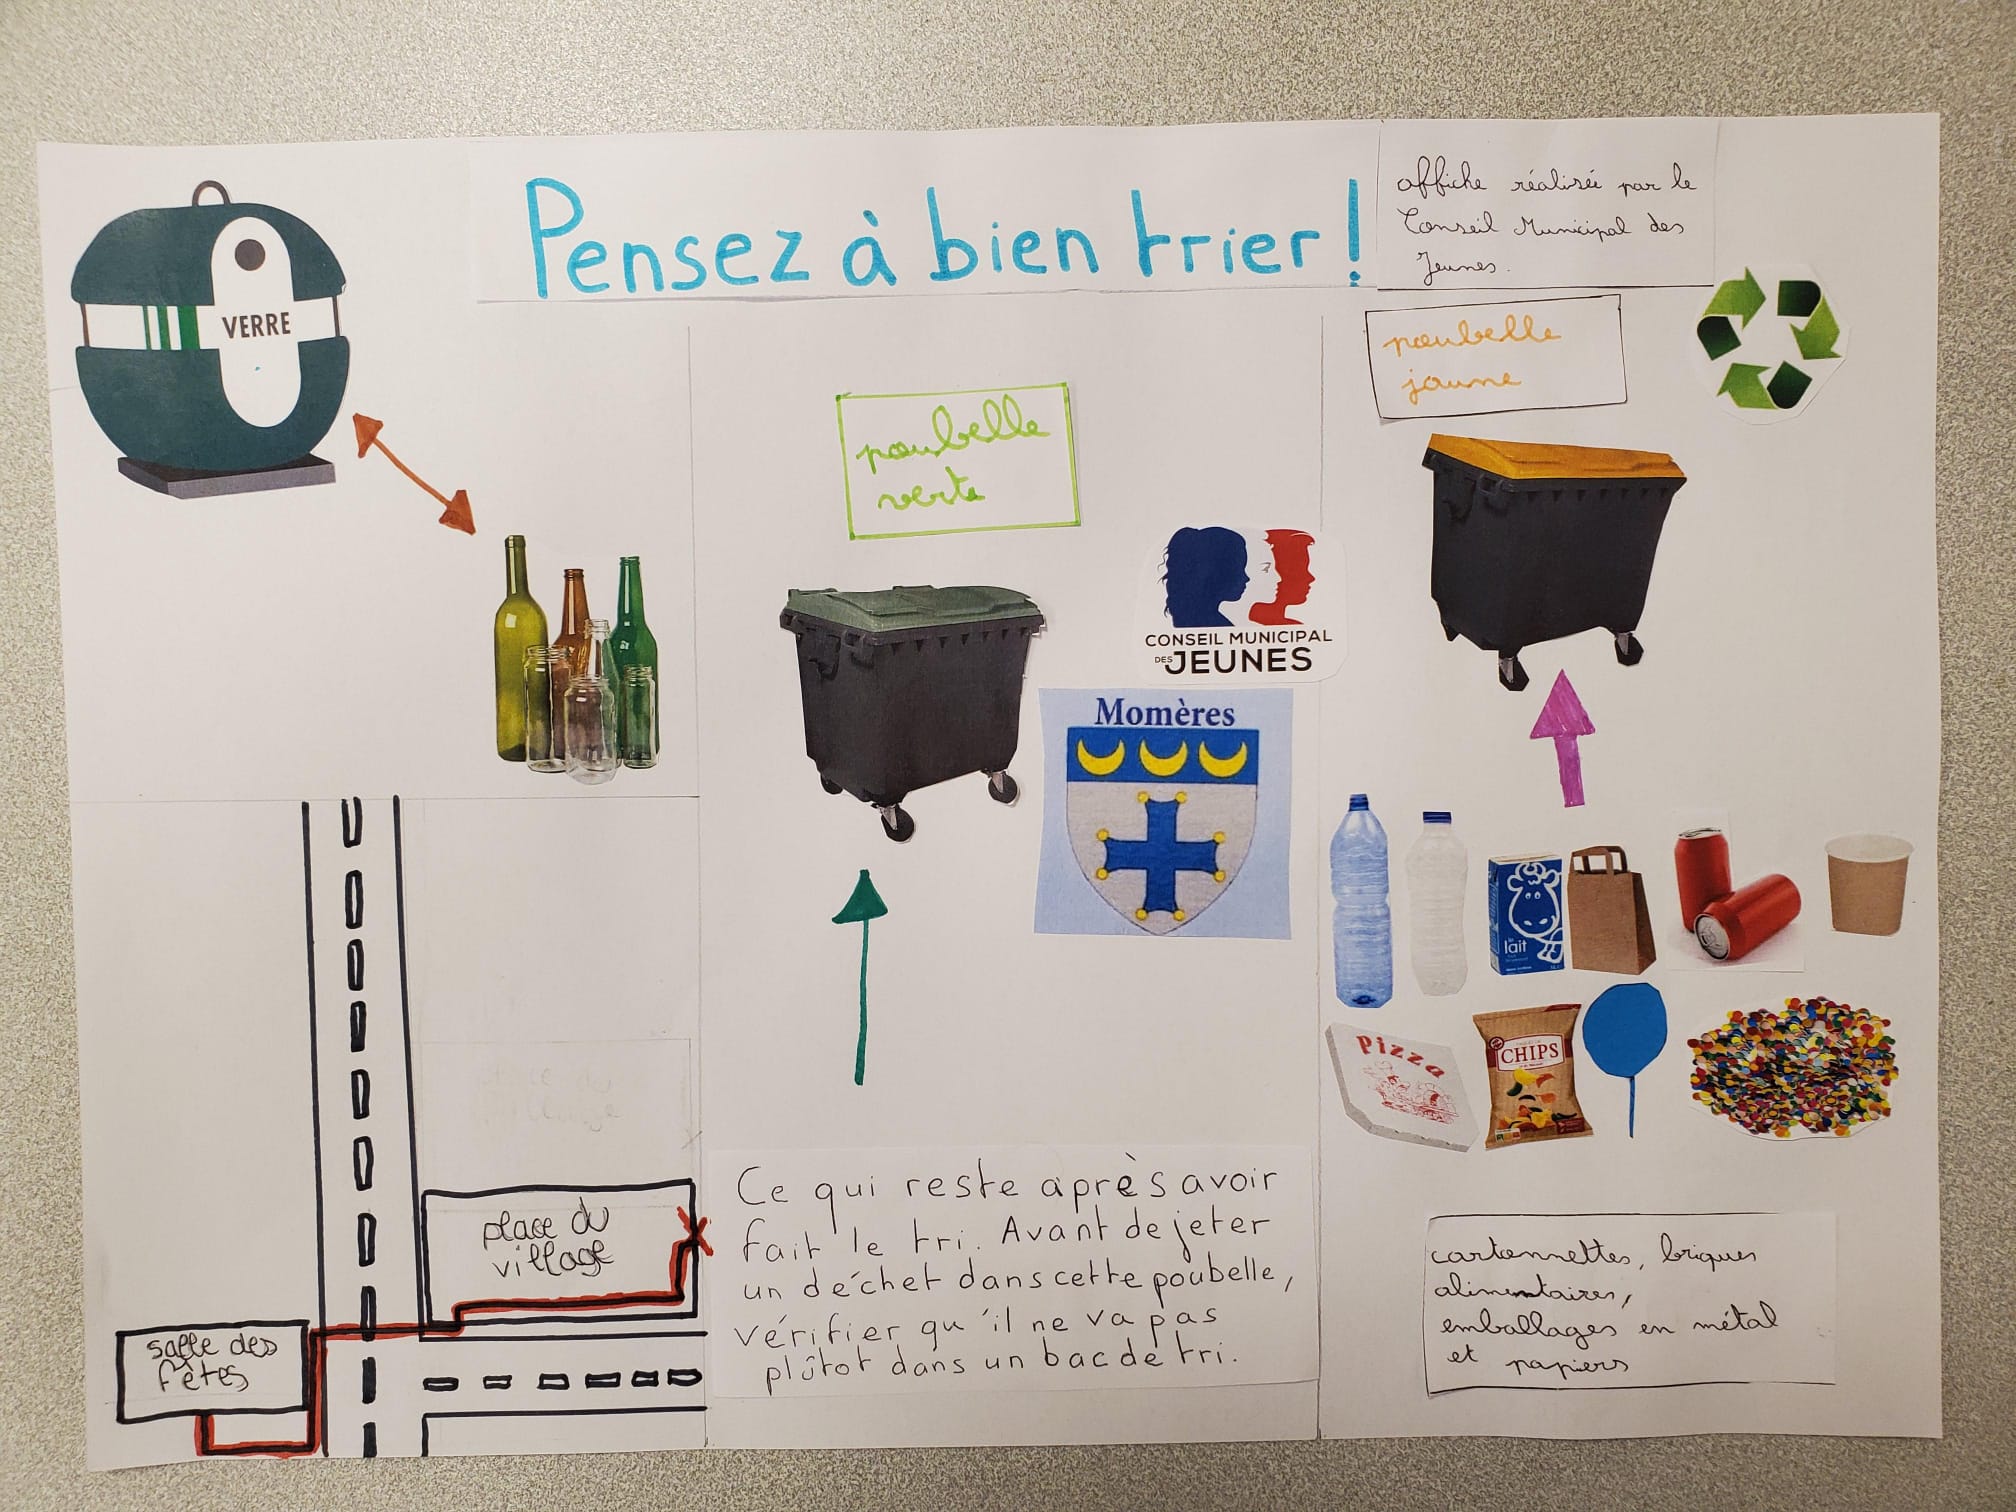 Pensez à bien trier !
affiche réalisée par le
Conseil Municipal des
Jeunes.
VERRE
poubelle
verte
poubelle
jaune
CONSEIL MUNICIPAL
DES JEUNES
Momères
lait
Pizza
CHIPS
place du
village
salle des
fêtes
Ce qui reste après avoir
fait le tri. Avant de jeter
un déchet dans cette poubelle,
vérifier qu'il ne va pas
plûtot dans un bac de tri.
cartonnettes, briques
alimentaires,
emballages en métal
et papiers